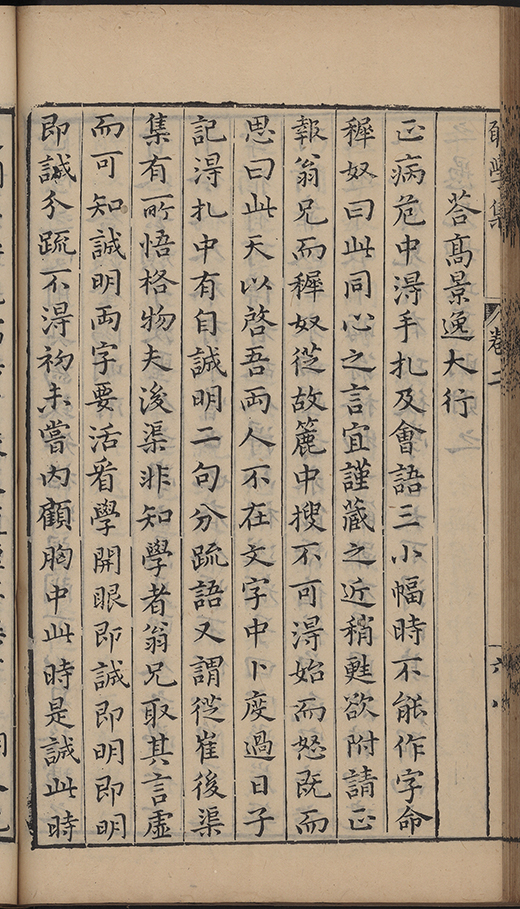 願學集 卷二 六八
答高景逸大行
正病危中得手扎及會語三小幅時不能作字命
穉奴曰此同心之言宜謹藏之近稍甦欲附請正
報翁兄而穉奴從故簏中搜不可得始而怒既而
思曰此天以啓吾兩人不在文字中卜度過日子
記得扎中有自誠明二句分疏語又謂從崔後渠
集有所悟格物夫後渠非知學者翁兄取其言虛
而可知誠明兩字要活看學開眼即誠即明即明
即誠分疏不得初未嘗内顧胸中此時是誠此時